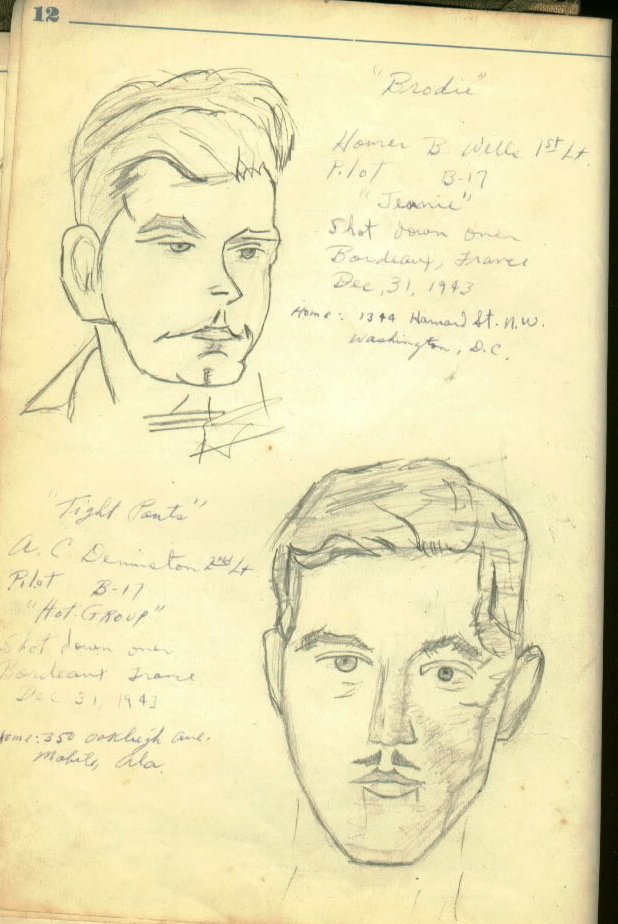 12
"Brodie"
Homer B. Wells 1st Lt.
Pilot B-17
"Jeanie"
Shot down over
Bordeaux, France
Dec, 31, 1943
Home: 1344 Harvard St. N.W.
Washington, D.C.
"Tight Pants"
A. C. Denniston 2nd Lt
Pilot B-17
"Hot GROUP"
Shot down over
Bordeaux France
Dec 31, 1943
Home: 350 Oakleigh Ave.
Mobile, Ala.